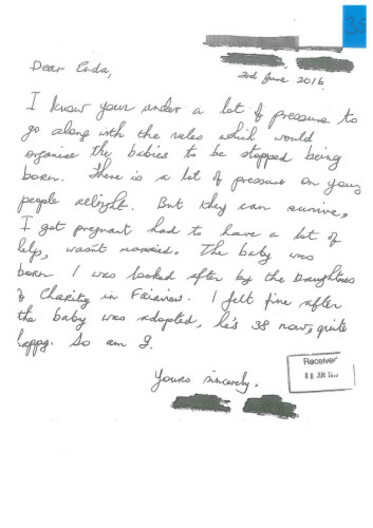 35
Dear Enda,
3rd June 2016
I know your under a lot of pressure to
go along with the rules which would
organise the babies to be stopped being
born. There is a lot of pressure on young
people allright. But they can survive,
I got pregnant had to have a lot of
help, wasn't married. The baby was
born I was looked after by the Daughters
of Charity in Fairview. I felt fine after
the baby was adopted, he's 38 now, quite
happy. So am I.
Receiver
08 JUN
Yours sincerely.